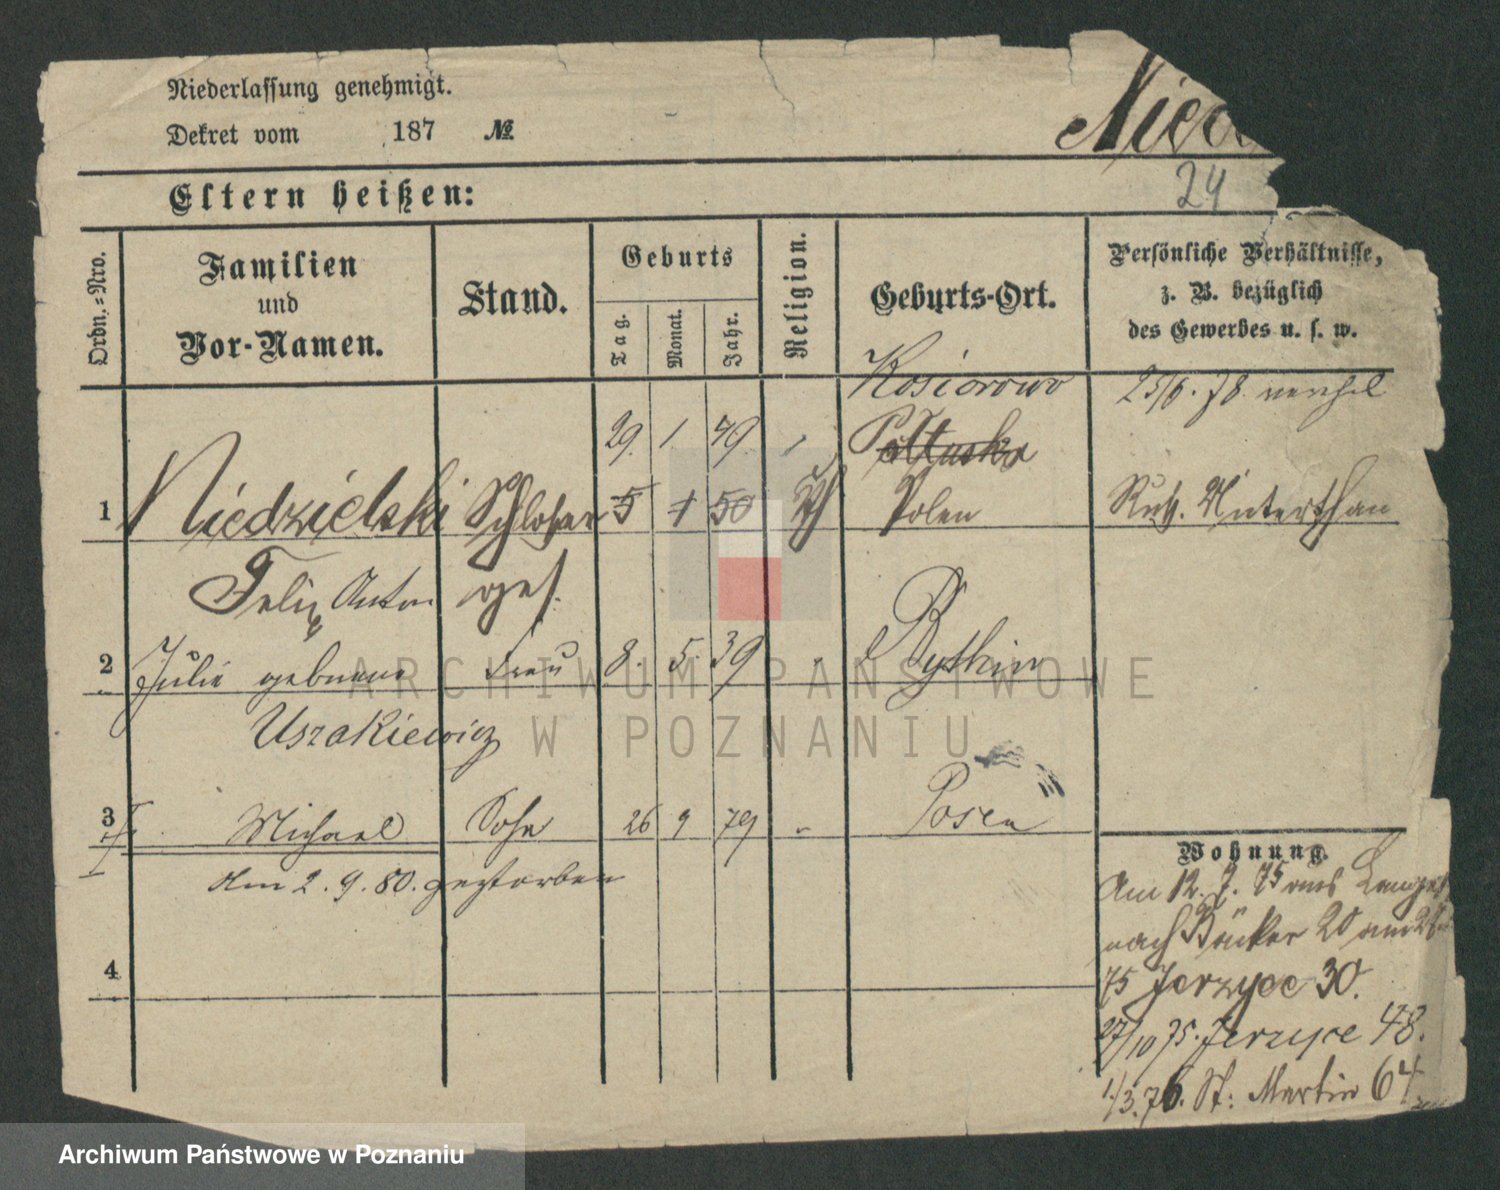 Niederlassung genehmigt.
Dekret vom 187 №
Nied
24
Eltern heißen:
Ordn.=Nro.
Familien
und
Vor-Namen.
Stand.
Geburts
Tag.
Monat.
Jahr.
Religion.
Geburts-Ort.
Persönliche Verhältnisse,
z. B. bezüglich
des Gewerbes u. s. w.
Kosiorowo
25/6. 78
29. 1 49
Połtusk
1 Niedzielski Schlosser 5 1 50 Polen Russ. Unterthan
Felix Anton ges.
2 Julie geborene Frau 8. 5. 39 Rythin
Uszakiewicz
3 Michael Sohn 26 9 79 Posen
am 2. 9. 80. gestorben
4
Wohnung.
Am 12. 7. 75 aus
nach Bäcker 20 am
75 Jerzyce 30.
27/10 75. Jerzyce 48.
1./3. 76. St: Martin 64
ARCHIWUM PAŃSTWOWE
W POZNANIU
Archiwum Państwowe w Poznaniu